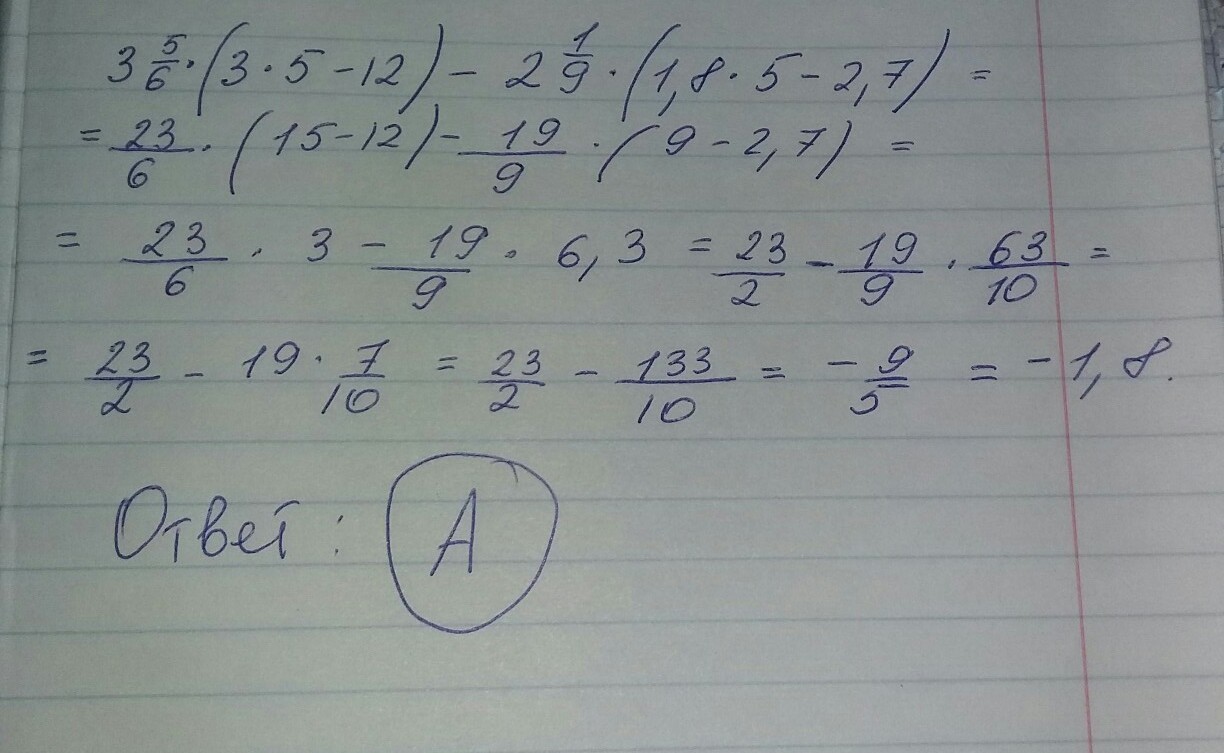 3 5/6 · (3 · 5 - 12) - 2 1/9 · (1,8 · 5 - 2,7) =
= 23/6 · (15 - 12) - 19/9 · (9 - 2,7) =
= 23/6 · 3 - 19/9 · 6,3 = 23/2 - 19/9 · 63/10 =
= 23/2 - 19 · 7/10 = 23/2 - 133/10 = -9/5 = -1,8.
Ответ: А